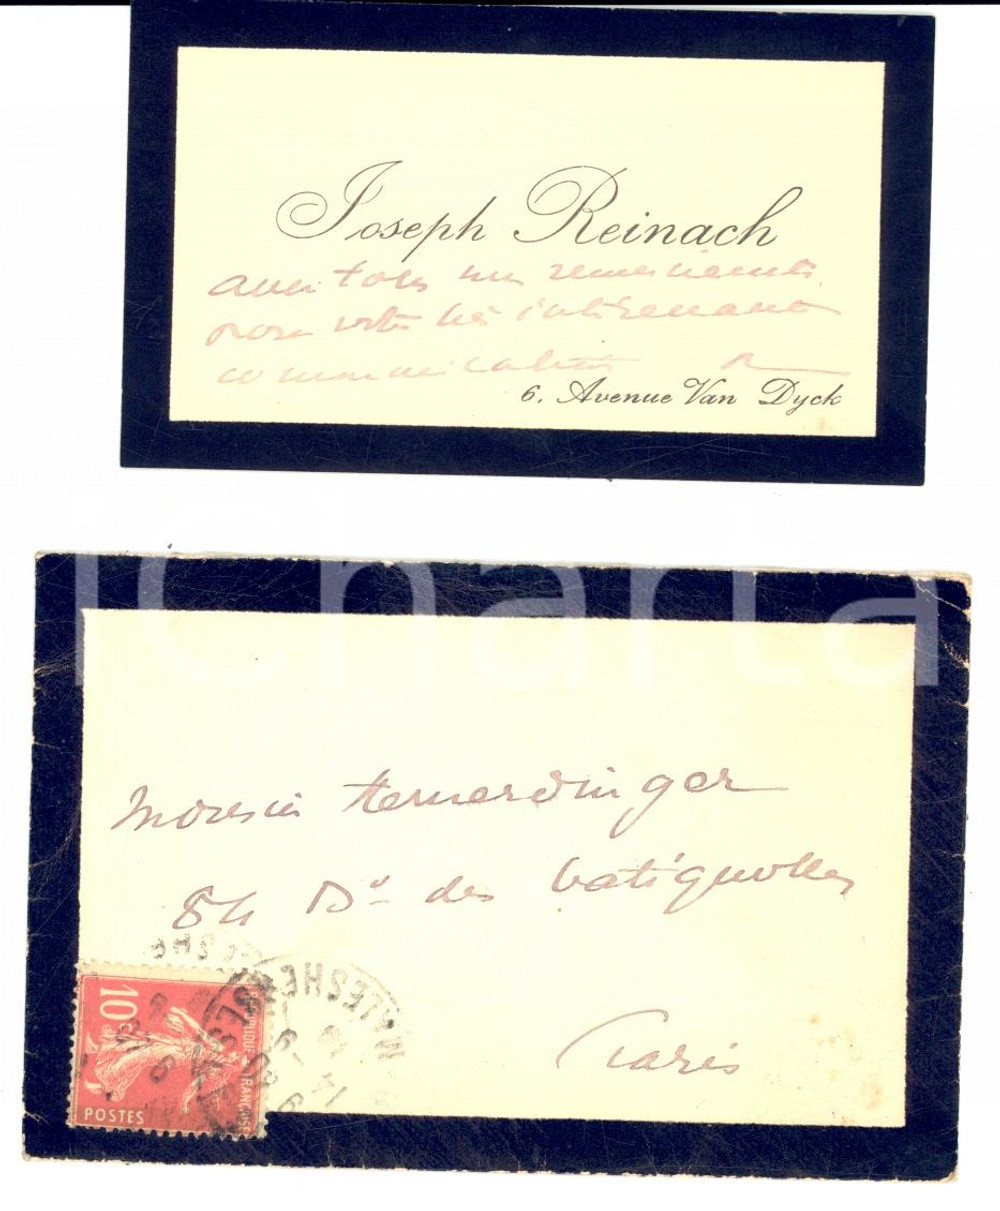 Joseph Reinach
avec tous mes remerciements
pour votre très intéressante
communication R
6, Avenue Van Dyck
iCharta
Monsieur Hernerdinger
84 Bd des Batignolles
Paris
10c
POSTES
MALESHERBES